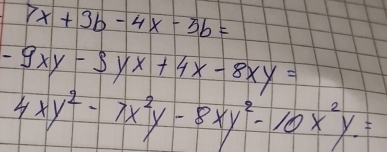 7x + 3b - 4x - 3b =
- 9xy - 3yx + 4x - 8xy =
4xy² - 7x²y - 8xy² - 10x²y =